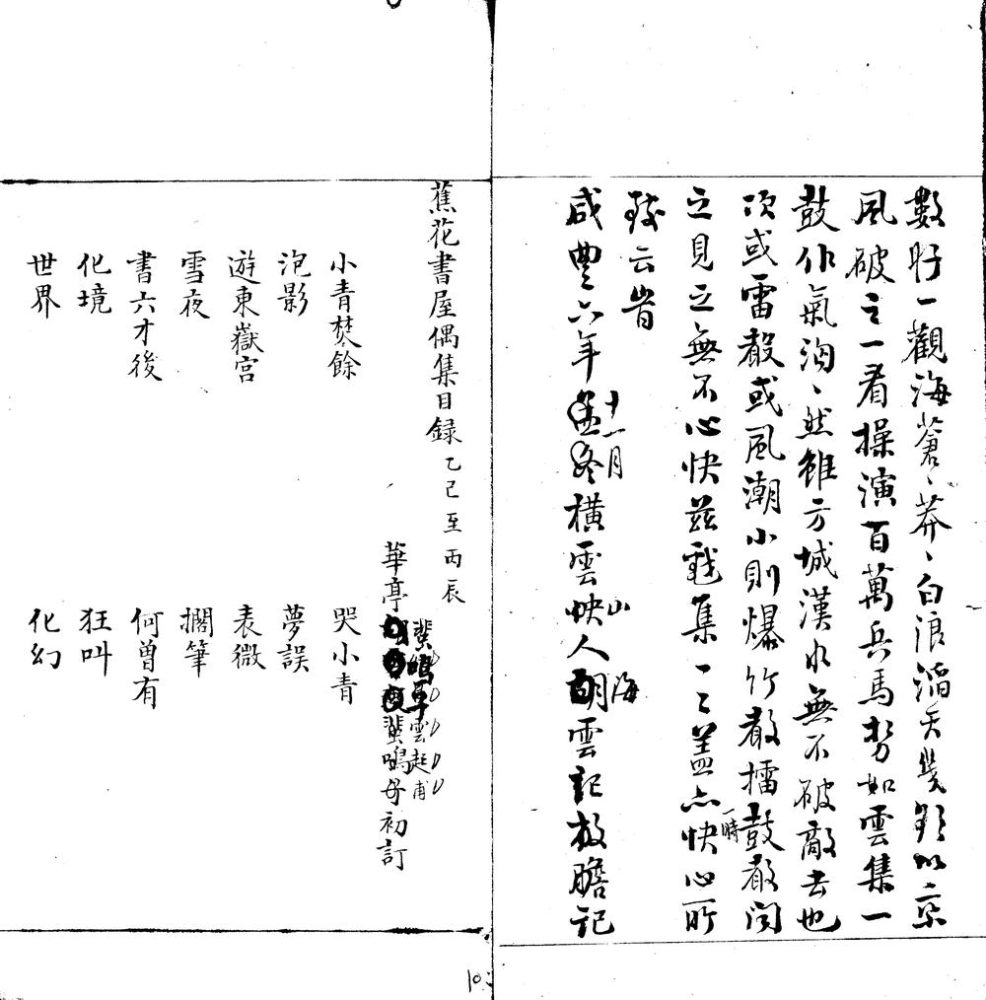 數時一觀海蒼、莽、白浪滔天幾欲以宗
風破之一看操演百萬兵馬勢如雲集一
鼓作氣洶、然雖方城漢水無不破敵去也
項或雷聲或風潮小則爆竹聲擂鼓聲聞
之見之無不心快茲戲集一之蓋亦一時快心所
致云耳
咸豐六年十一月橫雲山人海胡雲記放膽記
蕉花書屋偶集目録 乙巳至丙辰
華亭 蜚鳴 雲起甫 蜚鳴号初訂
小青焚餘 哭小青
泡影 夢誤
遊東嶽宮 表微
雪夜 擱筆
書六才後 何曾有
化境 狂叫
世界 化幻
10